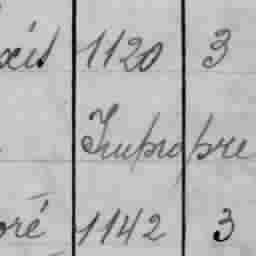 1120 3
Impropre
oré 1142 3